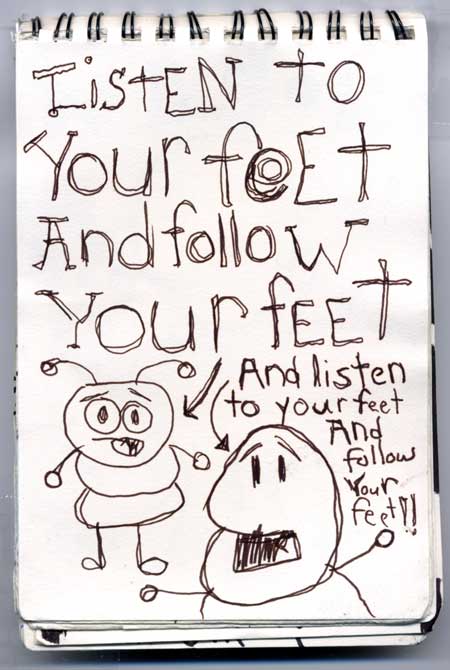 LisTEN TO
Your feET
And follow
YOUr fEET
And listen
to your feet
And
follow
Your
feet!!